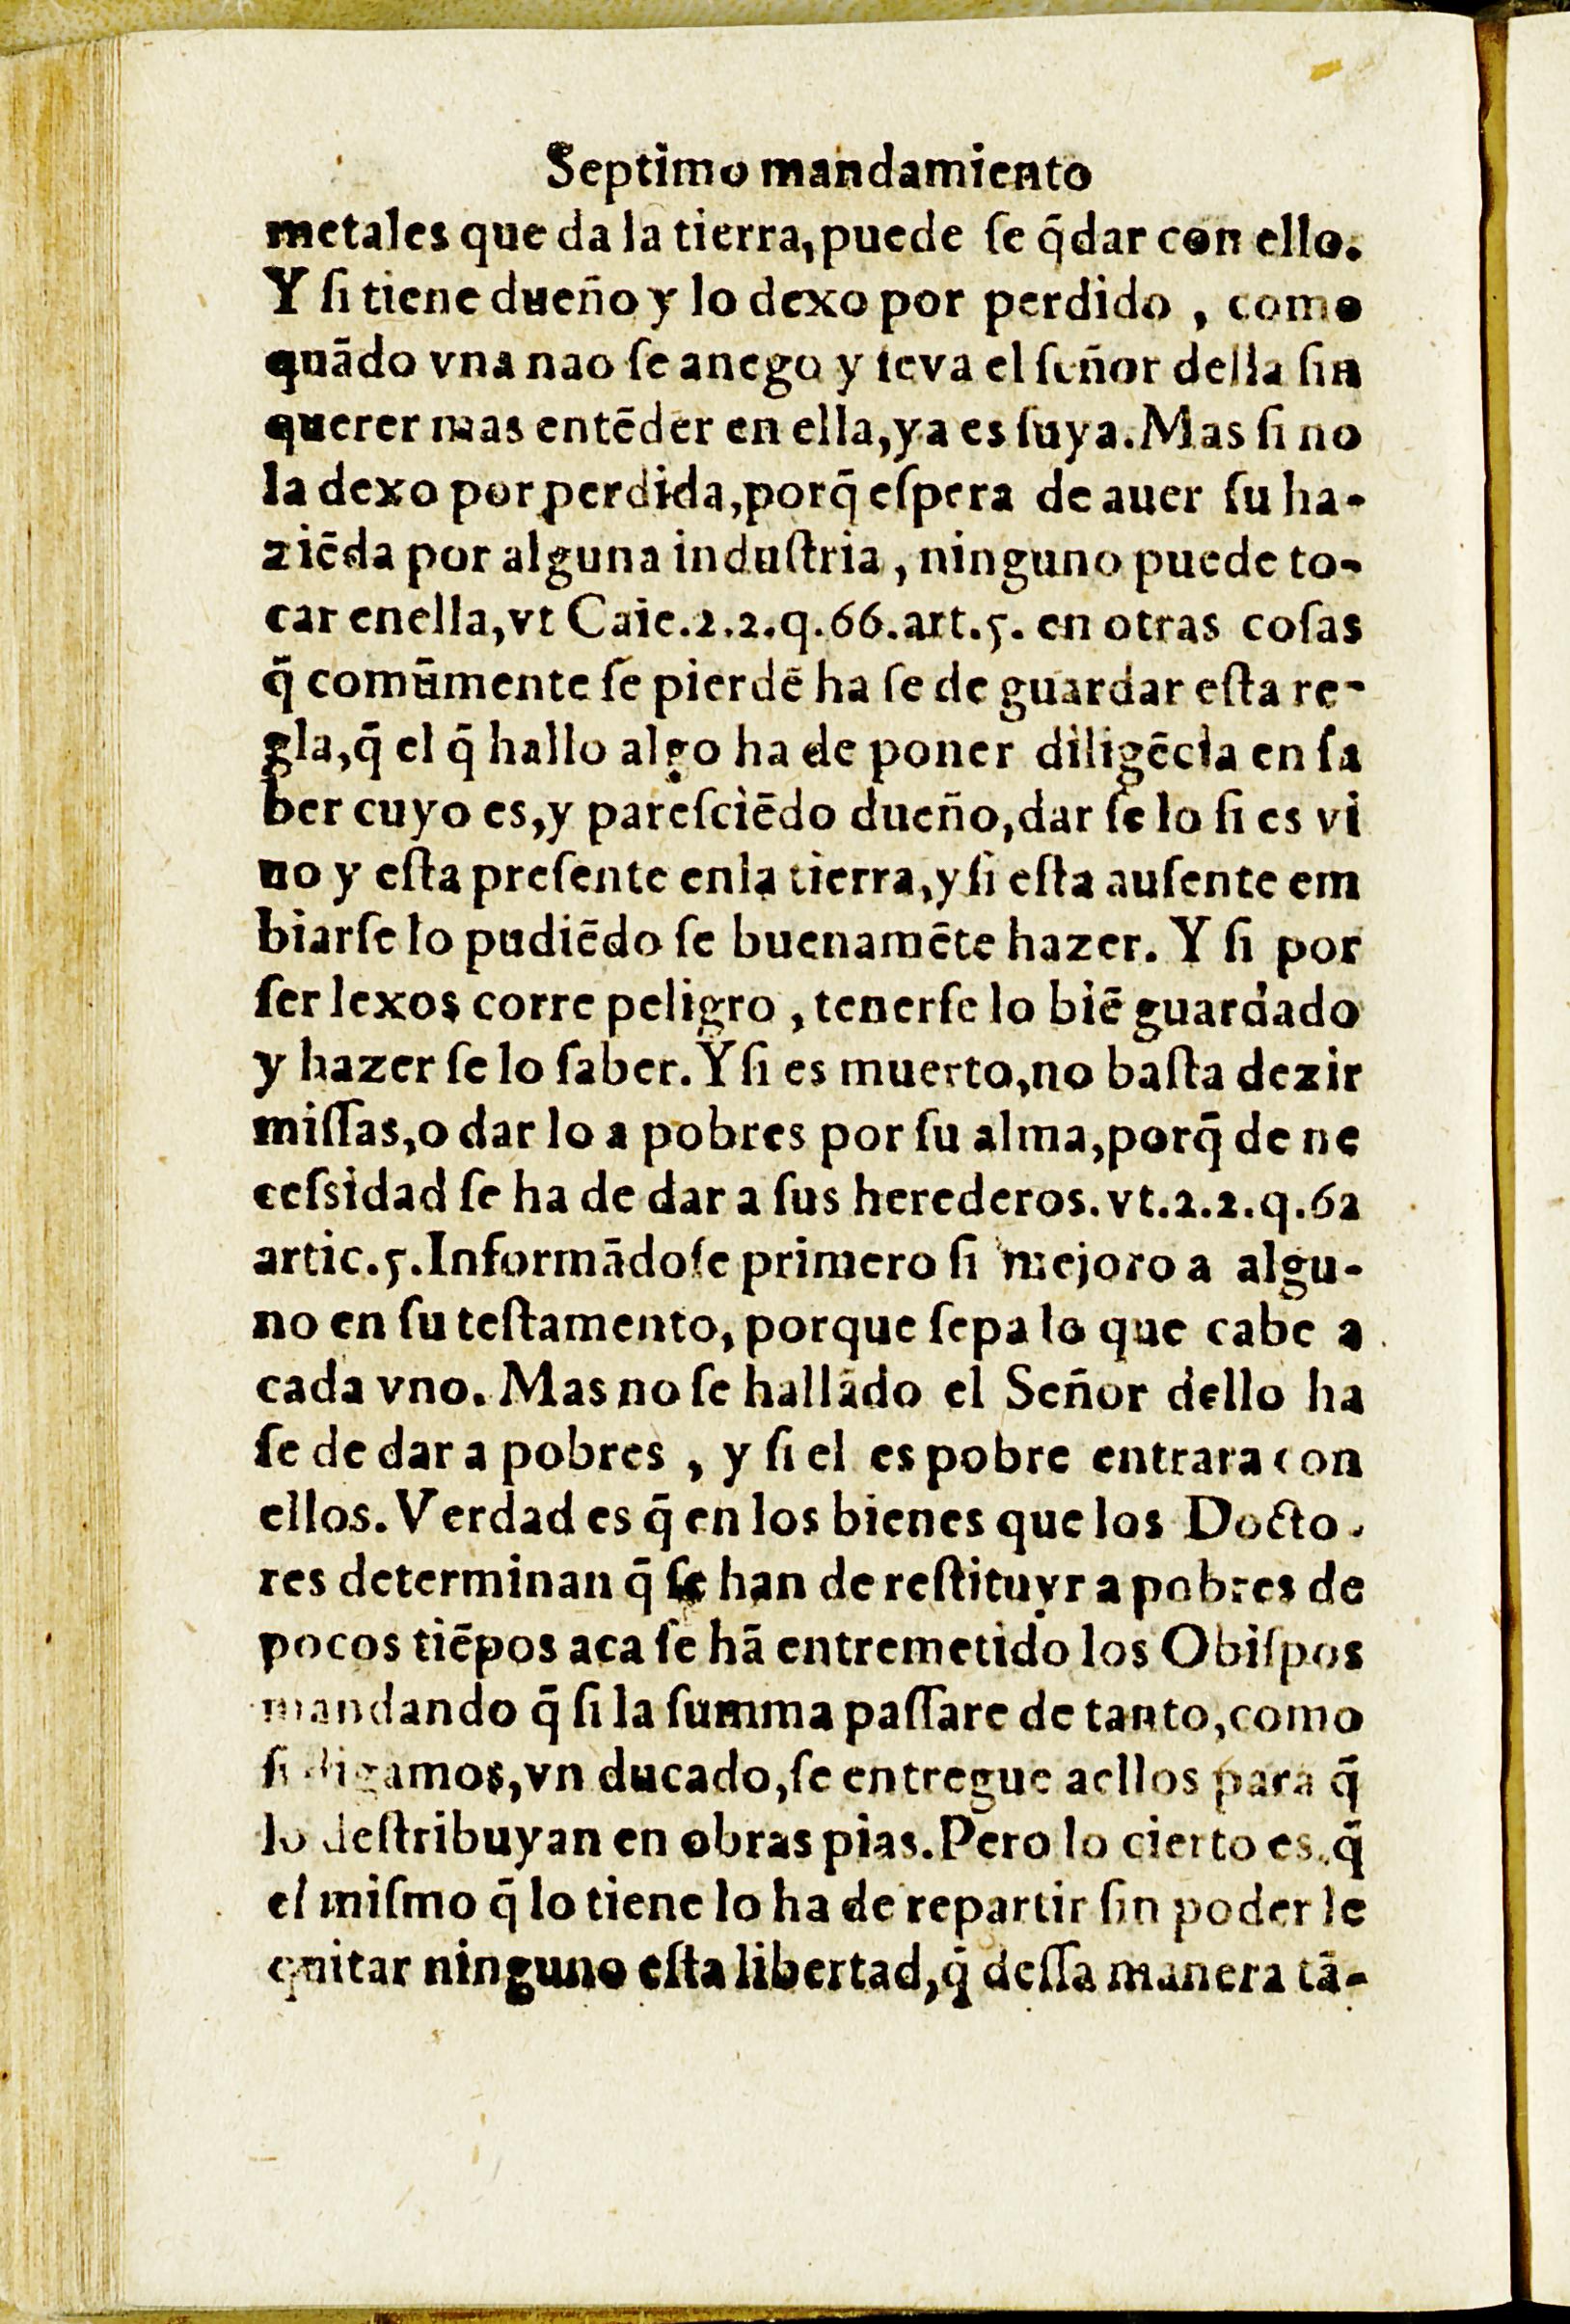 Septimo mandamiento
metales que da la tierra, puede ſe q̃dar con ello.
Y ſi tiene dueño y lo dexo por perdido , como
quãdo vna nao ſe anego y ſeva el ſeñor della ſin
querer mas entẽder en ella, ya es ſuya. Mas ſi no
la dexo por perdida, porq̃ eſpera de auer ſu ha-
ziẽda por alguna induſtria , ninguno puede to-
car enella, vt Caie.2.2.q.66.art.5. en otras coſas
q̃ comũmente ſe pierdẽ ha ſe de guardar eſta re-
gla, q̃ el q̃ hallo algo ha de poner diligẽcia en ſa
ber cuyo es, y pareſciẽdo dueño, dar ſe lo ſi es vi
uo y eſta preſente enla tierra, y ſi eſta auſente em
biarſe lo pudiẽdo ſe buenamẽte hazer. Y ſi por
ſer lexos corre peligro , tenerſe lo biẽ guardado
y hazer ſe lo ſaber. Y ſi es muerto, no baſta dezir
miſſas, o dar lo a pobres por ſu alma, porq̃ de ne
ceſsidad ſe ha de dar a ſus herederos. vt.2.2.q.62
artic.5. Informãdoſe primero ſi mejoro a algu-
no en ſu teſtamento, porque ſepa lo que cabe a
cada vno. Mas no ſe hallãdo el Señor dello ha
ſe de dar a pobres , y ſi el es pobre entrara con
ellos. Verdad es q̃ en los bienes que los Docto-
res determinan q̃ ſe han de reſtituyr a pobres de
pocos tiẽpos aca ſe hã entremetido los Obiſpos
mandando q̃ ſi la ſumma paſſare de tanto, como
ſi digamos, vn ducado, ſe entregue aellos para q̃
lo deſtribuyan en obras pias. Pero lo cierto es, q̃
el miſmo q̃ lo tiene lo ha de repartir ſin poder le
quitar ninguno eſta libertad, q̃ deſſa manera tã-